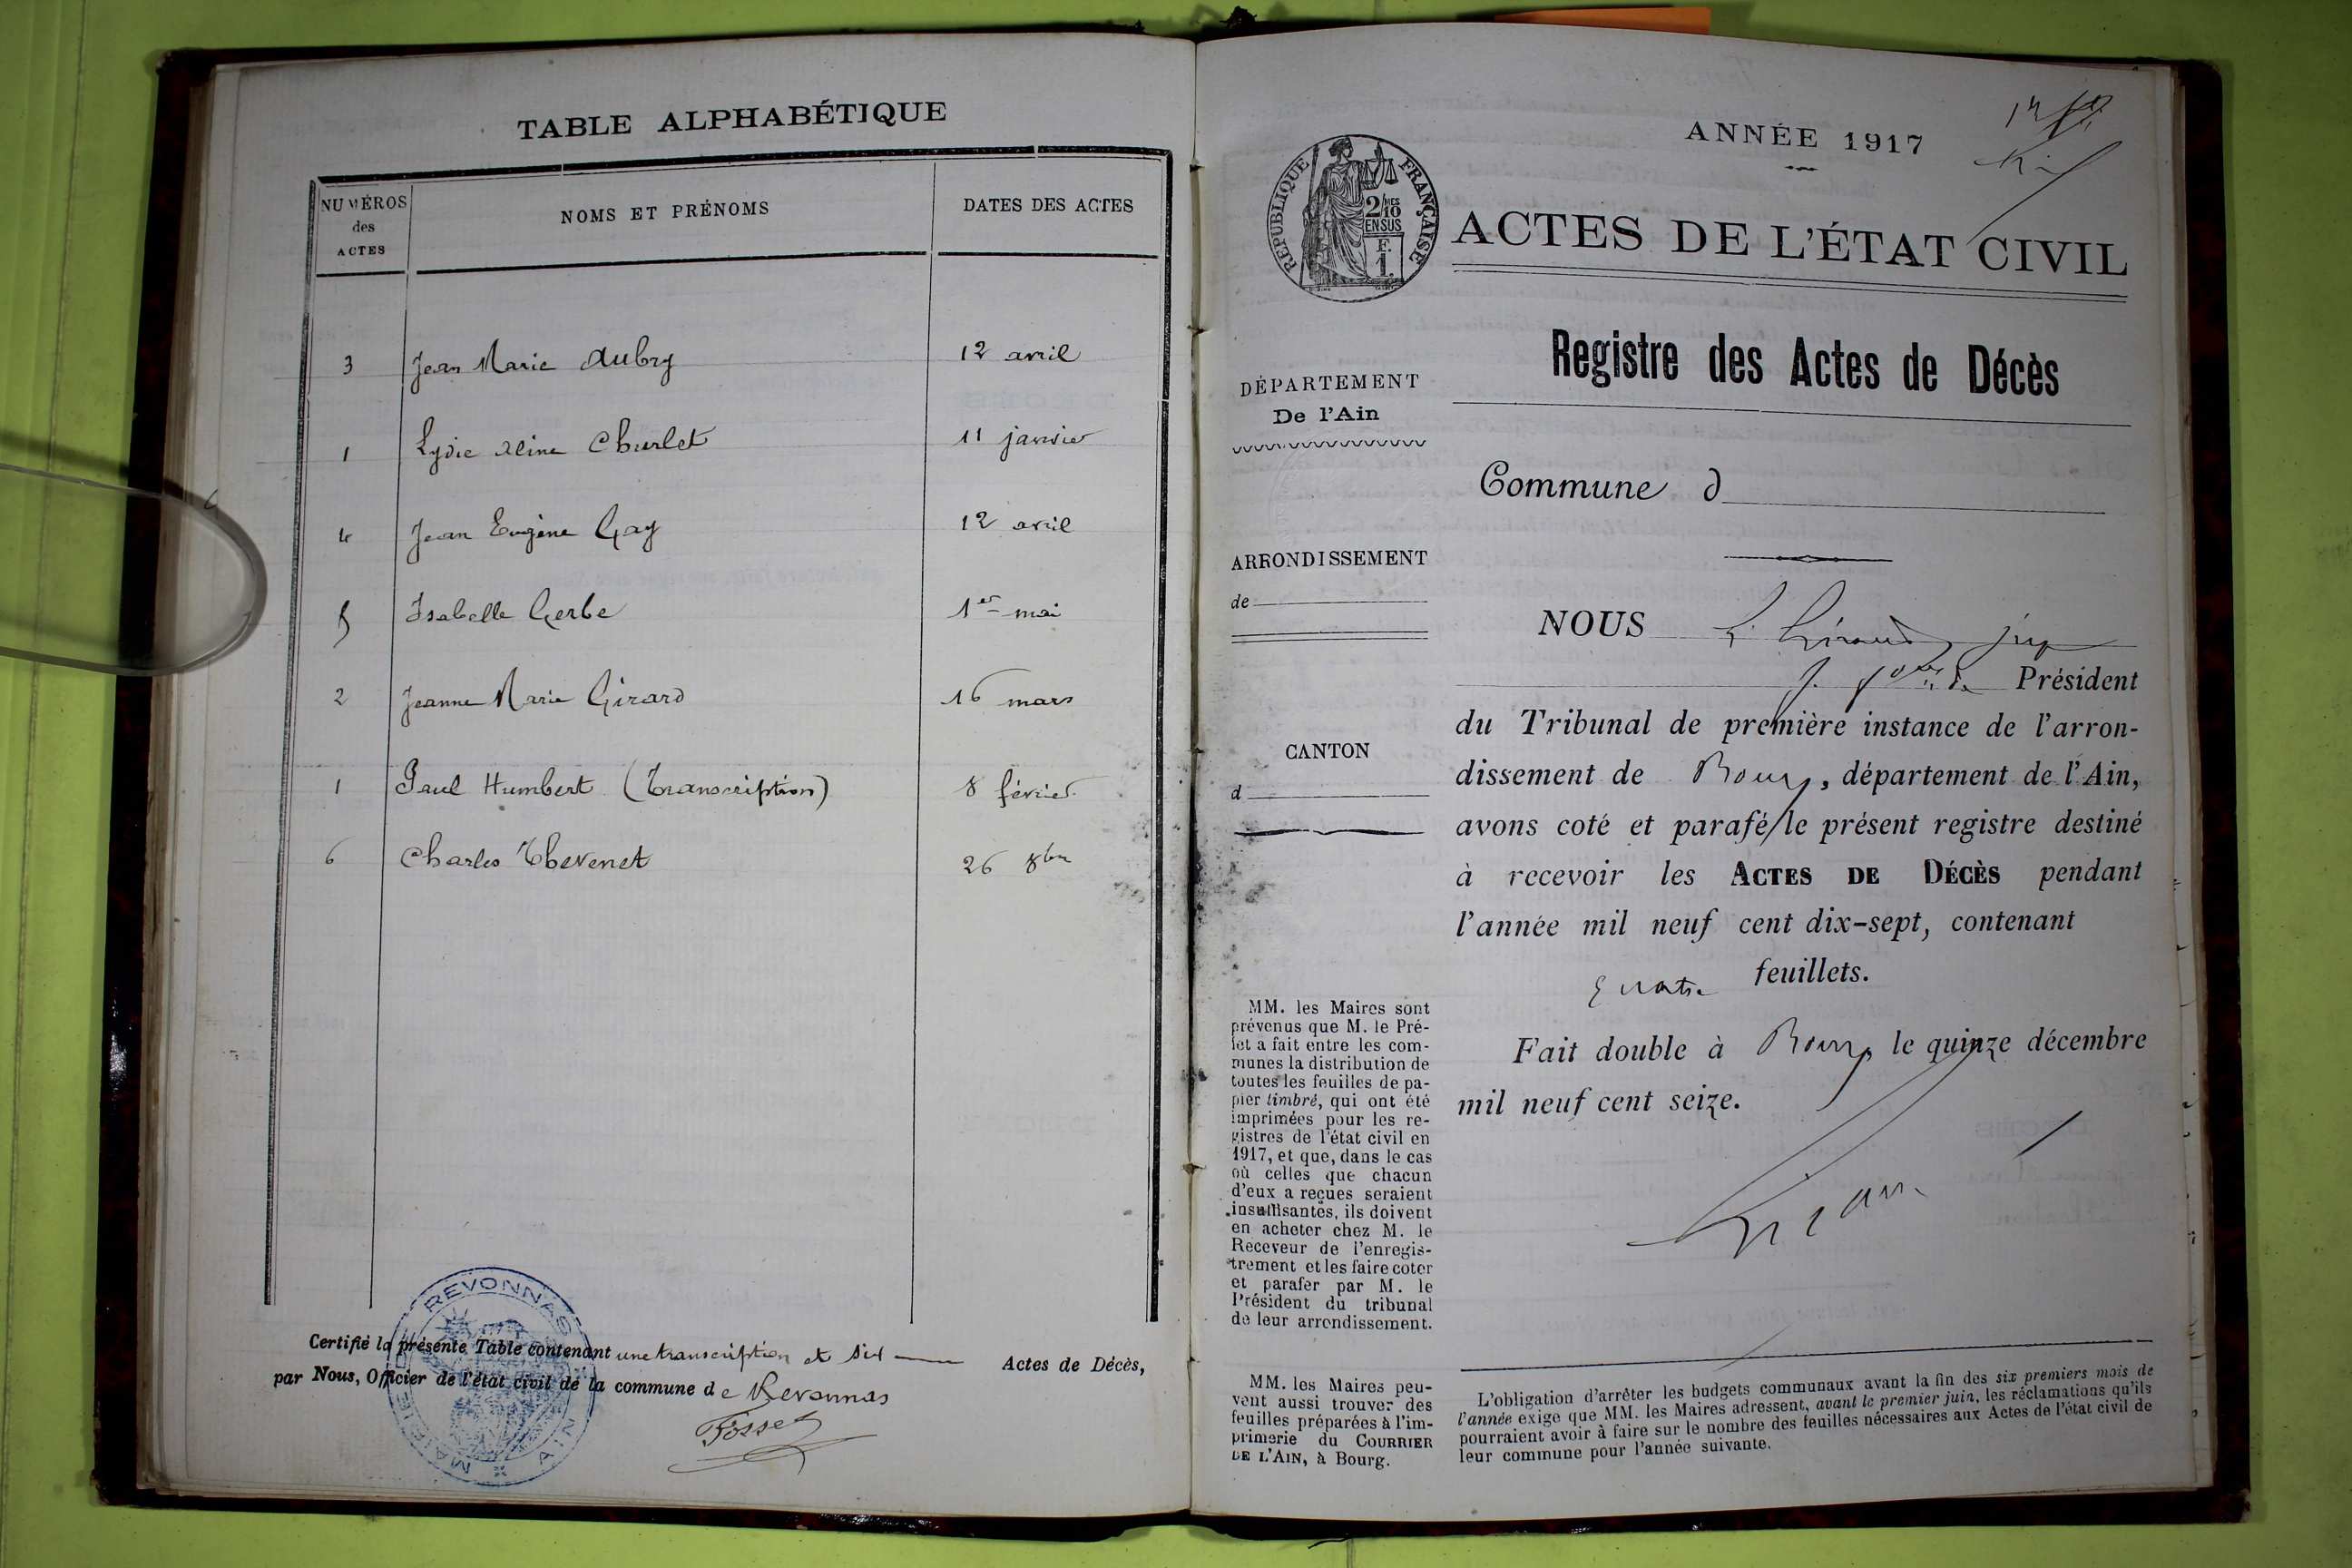 TABLE ALPHABÉTIQUE
NUMÉROS
des
ACTES
NOMS ET PRÉNOMS
DATES DES ACTES
3 Jean Marie Aubry 12 avril
1 Lydie Aline Churlet 11 janvier
4 Jean Eugène Gay 12 avril
5 Isabelle Gerbe 1er mai
2 Jeanne Marie Girard 16 mars
1 Paul Humbert (Transcription) 8 février
6 Charles Thevenet 26 8bre
Certifié la présente Table contenant une transcription et six Actes de Décès,
par Nous, Officier de l'état civil de la commune de Revonnas
MAIRIE REVONNAS AIN
ANNÉE 1917
RÉPUBLIQUE FRANÇAISE
2/10 MES
EN SUS
F.
1.
ACTES DE L'ÉTAT CIVIL
Registre des Actes de Décès
DÉPARTEMENT
De l'Ain
Commune d
ARRONDISSEMENT
de
CANTON
d
NOUS
Président
du Tribunal de première instance de l'arron-
dissement de Bourg, département de l'Ain,
avons coté et parafé le présent registre destiné
à recevoir les ACTES DE DÉCÈS pendant
l'année mil neuf cent dix-sept, contenant
quatre feuillets.
Fait double à Bourg, le quinze décembre
mil neuf cent seize.
MM. les Maires sont
prévenus que M. le Pré-
fet a fait entre les com-
munes la distribution de
toutes les feuilles de pa-
pier timbré, qui ont été
imprimées pour les re-
gistres de l'état civil en
1917, et que, dans le cas
où celles que chacun
d'eux a reçues seraient
insuffisantes, ils doivent
en acheter chez M. le
Receveur de l'enregis-
trement et les faire coter
et parafer par M. le
Président du tribunal
de leur arrondissement.
MM. les Maires peu-
vent aussi trouver des
feuilles préparées à l'im-
primerie du COURRIER
DE L'AIN, à Bourg.
L'obligation d'arrêter les budgets communaux avant la fin des six premiers mois de
l'année exige que MM. les Maires adressent, avant le premier juin, les réclamations qu'ils
pourraient avoir à faire sur le nombre des feuilles nécessaires aux Actes de l'état civil de
leur commune pour l'année suivante.